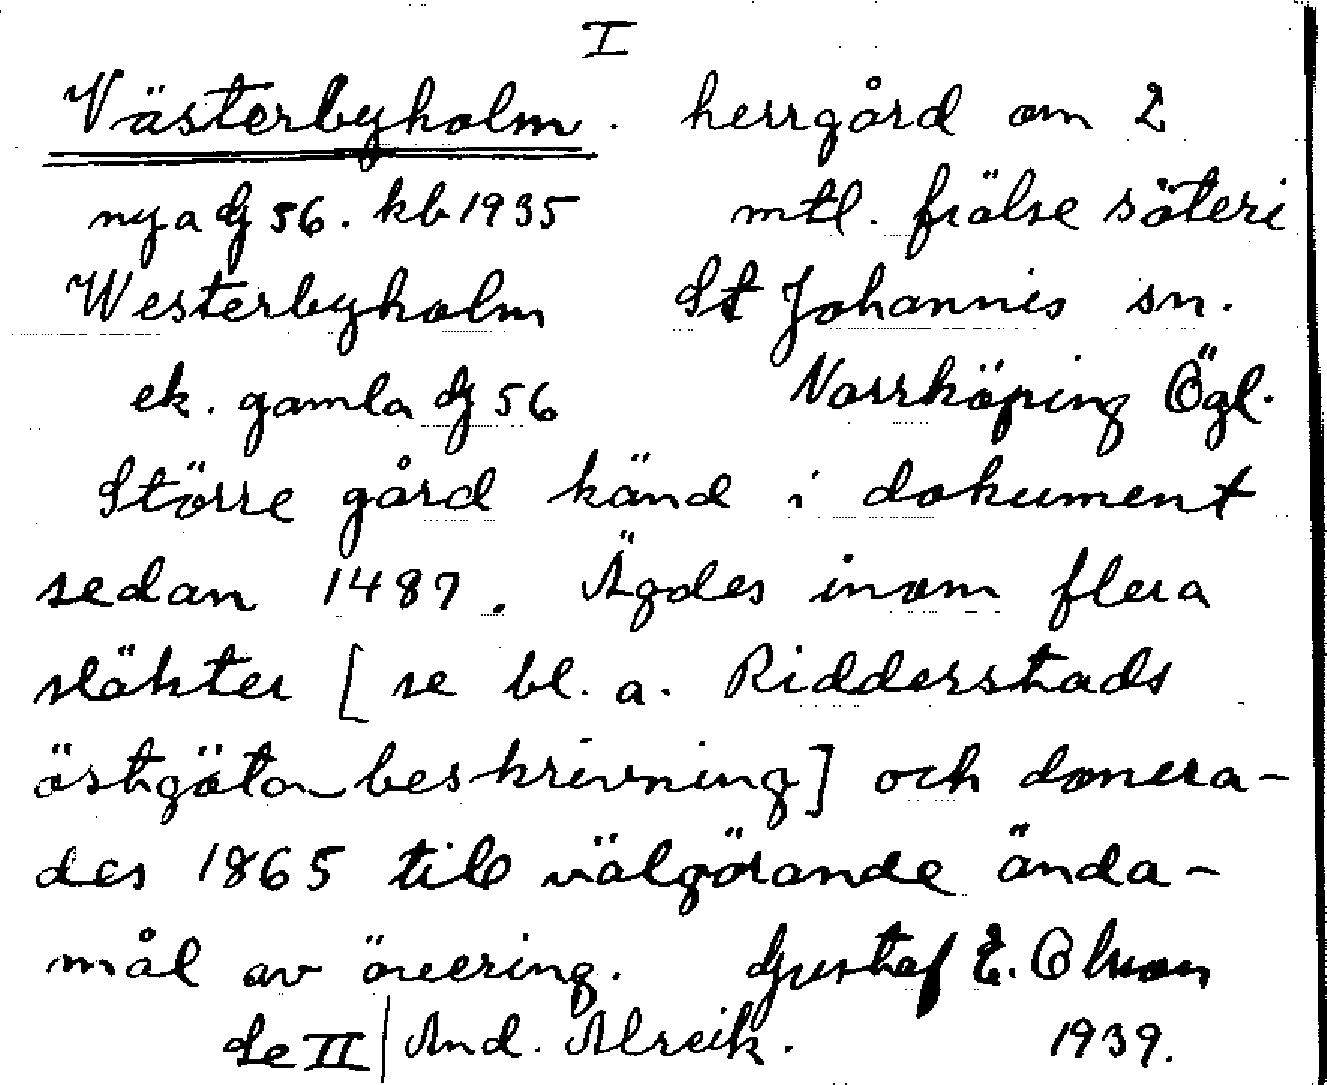 I
Västerbyholm. herrgård om 2
nya dj 56. kb 1935 mtl. frälse säteri
Westerbyholm St Johannis sn.
ek. gamla dj 56 Norrköping Ögl.
Större gård känd i dokument
sedan 1487. Ägdes inom flera
släkter [se bl. a. Ridderstads
östgötabeskrivning] och donera-
des 1865 till välgörande ända-
mål av Gustaf E. Olsson
Se II And. Alreik. 1939.